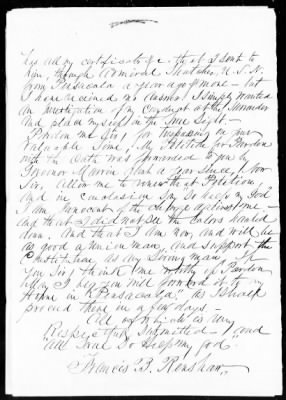 has all my certificates &c, that I sent to
him, through Admiral Thatcher, U.S.N.
from Pensacola a year ago & more - but
I have recieved no answer. I simply wanted
an investigation of my conduct at the Surrender
and place myself in the true light -
Pardon me Sir, for trespassing on your
Valuable time, My Petition for Pardon
with the Oath was forwarded to you by
Governor Marvin about a year since, Now
Sir, allow me to renew that Petition,
and in conclusion say, So help me God
I am innocent of the charge against me -
and that I did not see the Colors hauled
down, and that I am now, and will be
as good a Union man, and support the
Constitution, as any living man. If
you Sir, think me worthy of Pardon
may I beg you will forward it to my
Home in "Pensacola," as I shall
proceed there in a few days -
All of which is very
Respectfully Submitted - and
"All True So Help me God"
Francis B. Renshaw